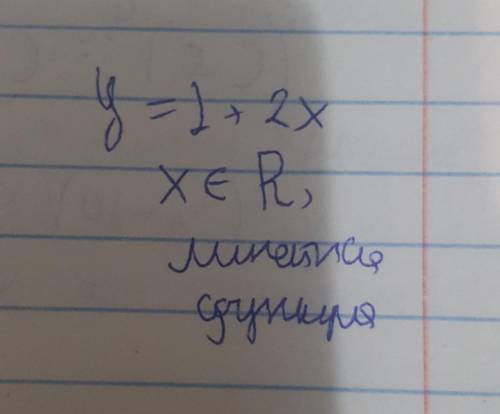 y = 1 + 2x
x ∈ R,
линейная
функция